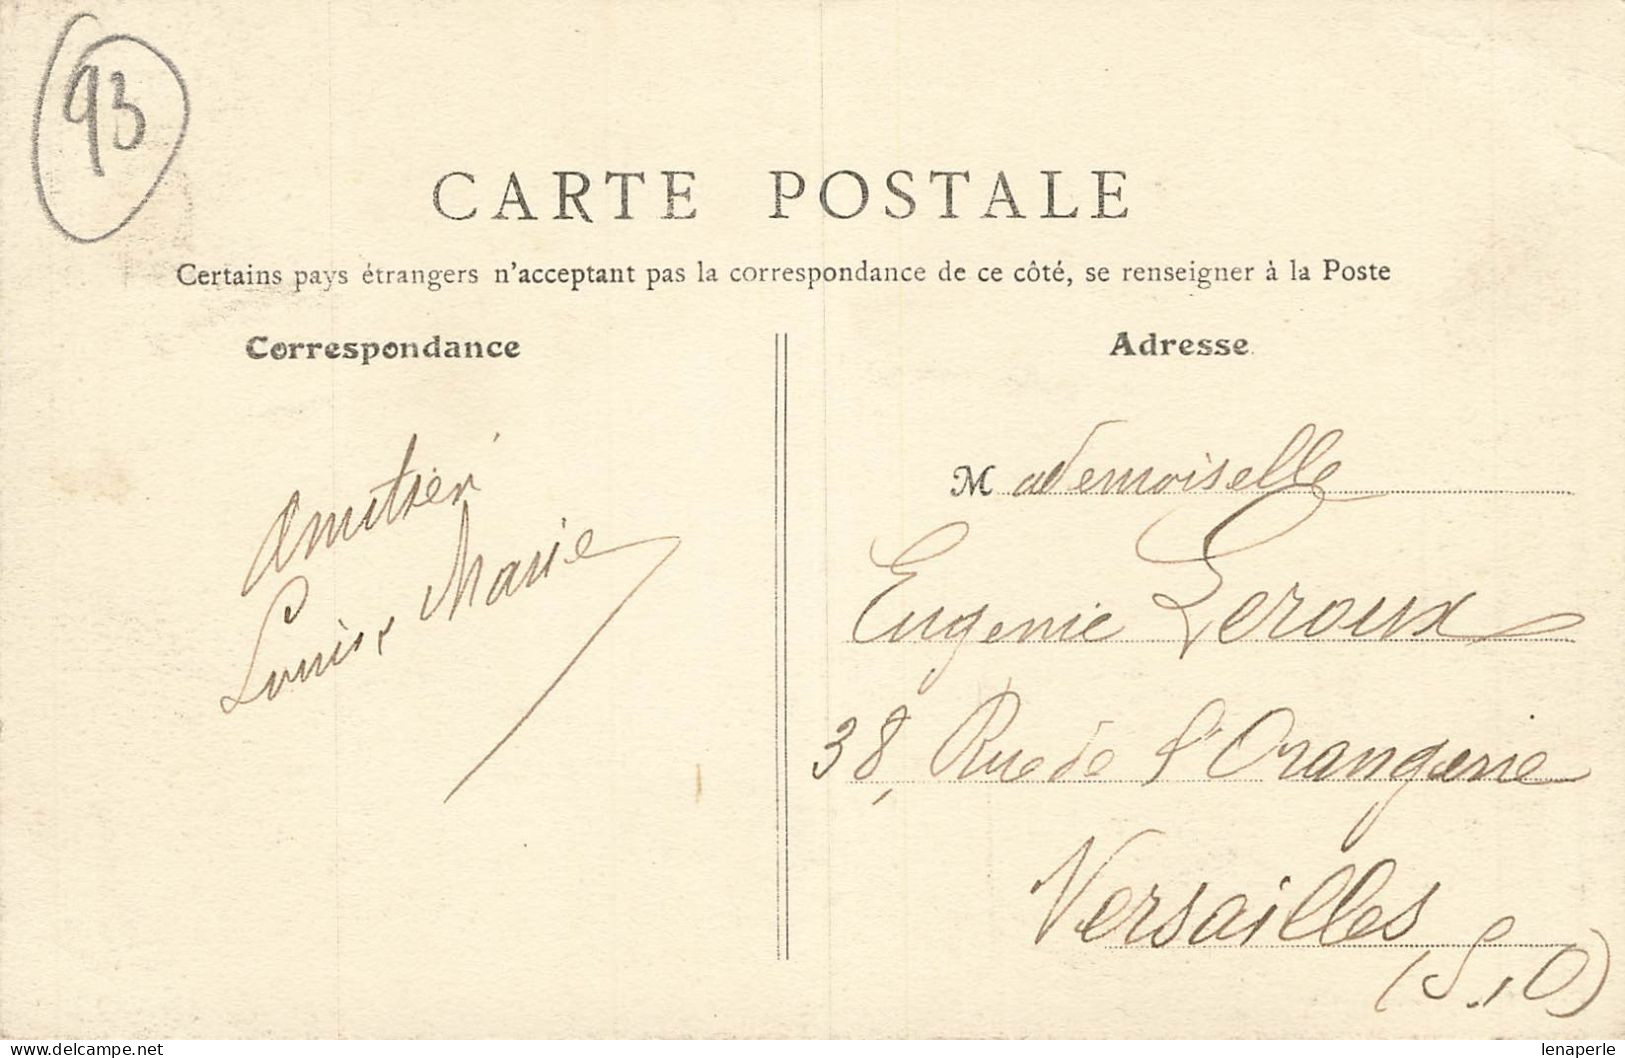 93
CARTE POSTALE
Certains pays étrangers n'acceptant pas la correspondance de ce côté, se renseigner à la Poste
Correspondance
Louis, Marie
Adresse
Mademoiselle
Eugenie Leroux
38, Rue de l'Orangerie
Versailles
(S.O)
lenaperle